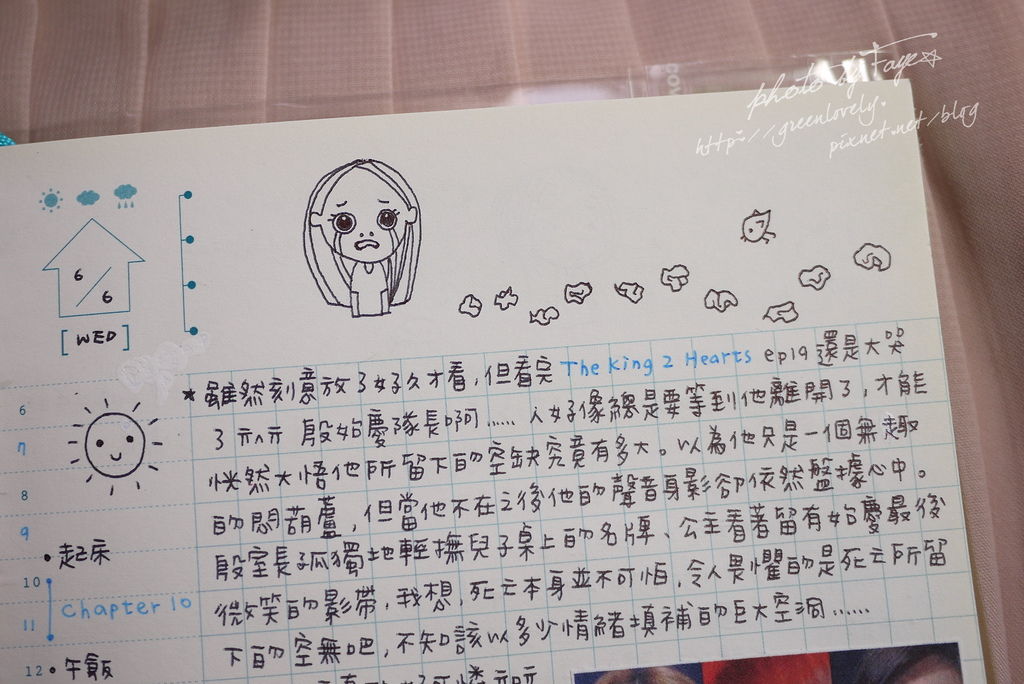 photo by Faye
http://greenlovely.
pixnet.net/blog
6/6
[WED]
★雖然刻意放了好久才看,但看完 The King 2 Hearts ep19 還是大哭
了ㄇㄇ 殷始慶隊長啊...... 人好像總是要等到他離開了,才能
恍然大悟他所留下的空缺究竟有多大。以為他只是一個無趣
的悶葫蘆,但當他不在之後他的聲音身影卻依然盤據心中。
殷室長孤獨地輕撫兒子桌上的名牌、公主看著留有始慶最後
微笑的影帶,我想,死亡本身並不可怕,令人畏懼的是死亡所留
下的空無吧,不知該以多少情緒填補的巨大空洞......
6
7
8
9
•起床
10
Chapter 10
11
12 •午飯